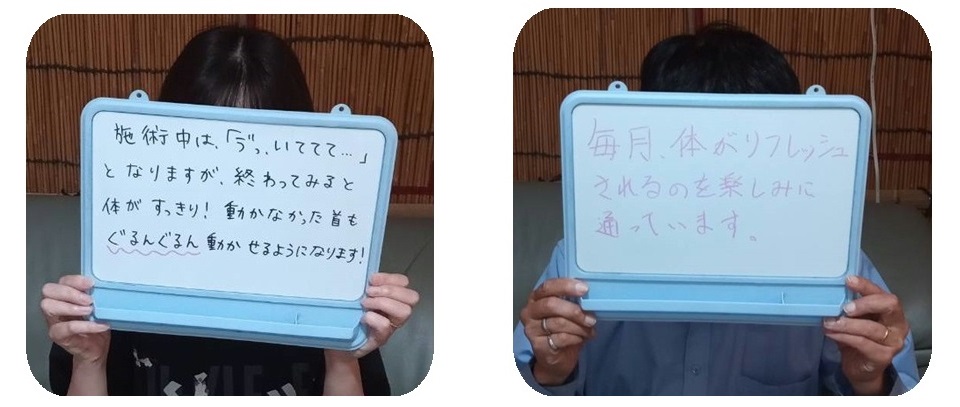 施術中は、「ゔっ、いててて…」
となりますが、終わってみると
体がすっきり！動かなかった首も
ぐるんぐるん動かせるようになります！
毎月、体がリフレッシュ
されるのを楽しみに
通っています。